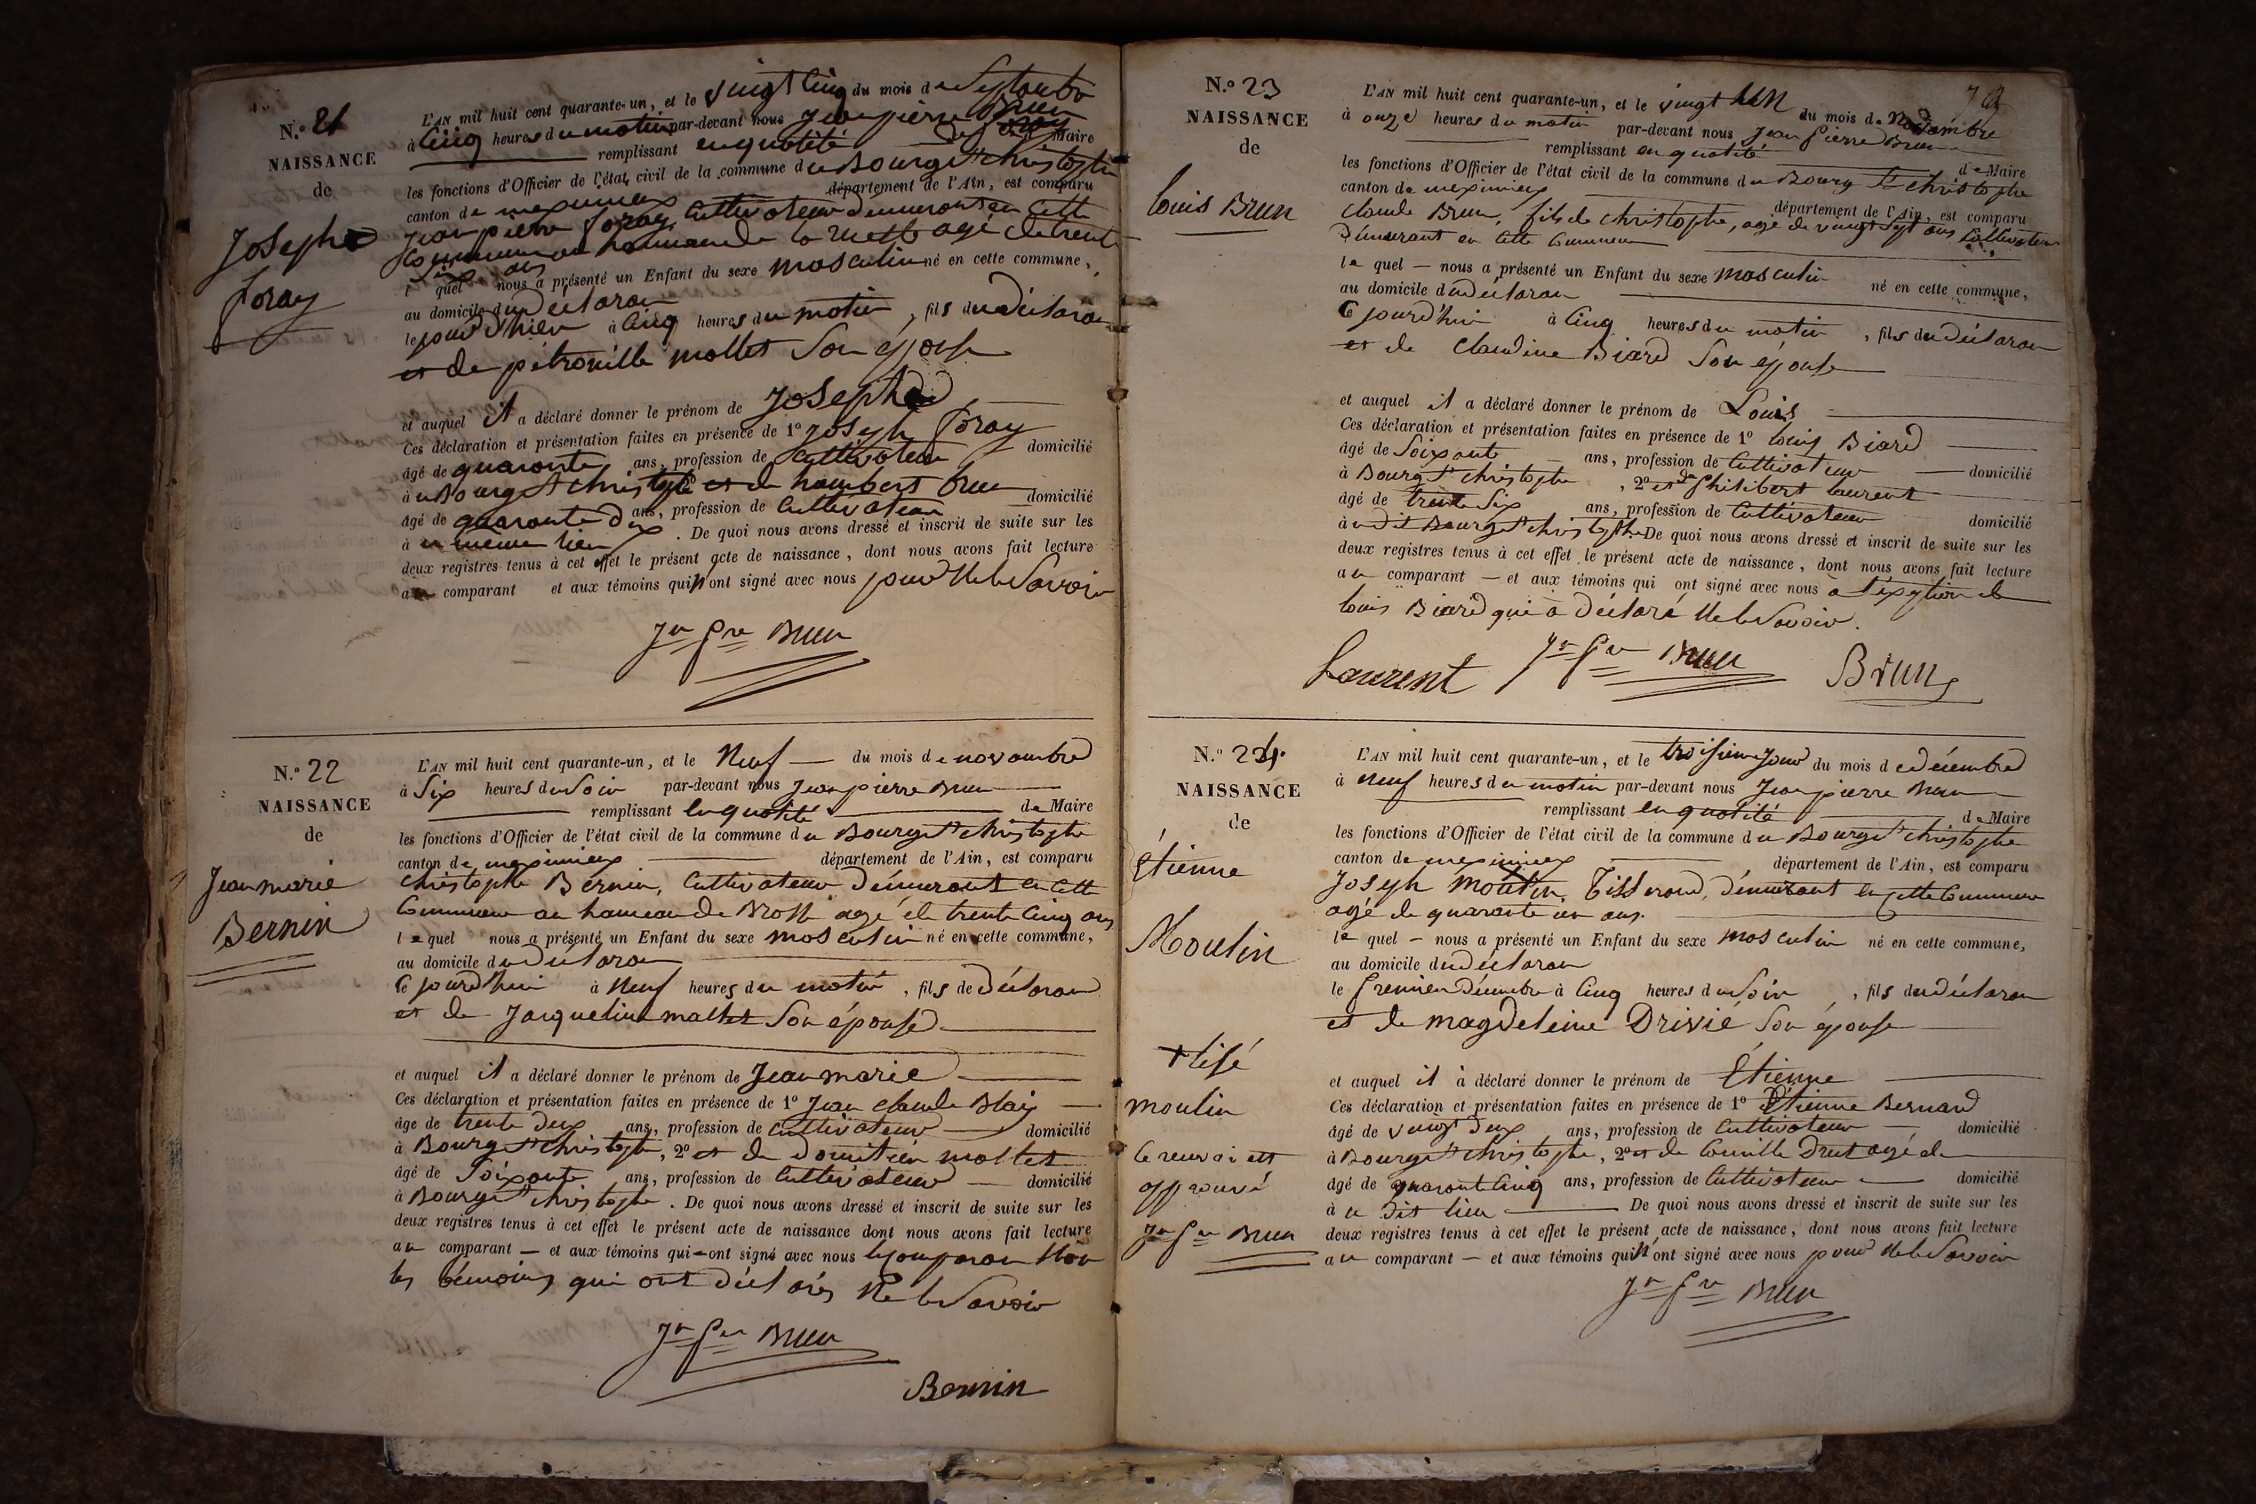 N.° 21
NAISSANCE
de
Joseph
foray
L'AN mil huit cent quarante-un, et le vingt cinq du mois de Septembre
à Cinq heures du matin par-devant nous Jean pierre Brun
remplissant en qualité de Maire
les fonctions d'Officier de l'état civil de la commune du Bourg St christophe
canton de meximieux département de l'Ain, est comparu
Jean pierre foray, Cultivateur démeurant en Cette
Commune au hameau de la agé de trente
Six ans
l quel nous a présenté un Enfant du sexe masculin né en cette commune,
au domicile du déclaran
le jour d'hier à Cinq heures du matin, fils du déclaran
et de pétronille mollet Son épouse
et auquel il a déclaré donner le prénom de Joseph
Ces déclaration et présentation faites en présence de 1° Joseph foray
âgé de quarante ans, profession de Cultivateur domicilié
à u Bourg St christophe et de humbert brun
âgé de quarante deux ans, profession de Cultivateur domicilié
à u même lieu. De quoi nous avons dressé et inscrit de suite sur les
deux registres tenus à cet effet le présent acte de naissance, dont nous avons fait lecture
au comparant et aux témoins qui n'ont signé avec nous pour Ne le Savoir
Jn Pre Brun
N.° 22
NAISSANCE
de
Jean marie
Bernin
L'AN mil huit cent quarante-un, et le Neuf du mois de novembre
à Six heures du Soir par-devant nous Jean pierre Brun
remplissant en qualité de Maire
les fonctions d'Officier de l'état civil de la commune du Bourg St christophe
canton de meximieux département de l'Ain, est comparu
christophe Bernin, Cultivateur démeurant en Cette
Commune au hameau de agé de trente Cinq ans
le quel nous a présenté un Enfant du sexe masculin né en cette commune,
au domicile du déclaran
Ce jourd'hui à Neuf heures du matin, fils de déclaran
et de Jacqueline mallet Son épouse
et auquel il a déclaré donner le prénom de Jean marie
Ces déclaration et présentation faites en présence de 1° Jean claude Blay
âgé de trente deux ans, profession de Cultivateur domicilié
à Bourg St christophe, 2° et de domitien mollet
âgé de Soixante ans, profession de Cultivateur domicilié
à Bourg St christophe. De quoi nous avons dressé et inscrit de suite sur les
deux registres tenus à cet effet le présent acte de naissance dont nous avons fait lecture
au comparant et aux témoins qui ont signé avec nous le Comparan Non
les témoins qui ont déclarés Ne le Savoir
Jn Pre Brun
Bernin
N.° 23
NAISSANCE
de
louis Brun
L'AN mil huit cent quarante-un, et le vingt un du mois de Novembre
à onze heures du matin par-devant nous Jean pierre Brun
remplissant en qualité de Maire
les fonctions d'Officier de l'état civil de la commune du Bourg St christophe
canton de meximieux département de l'Ain, est comparu
claude Brun, fils de christophe, agé de vingt Sept ans Cultivateur
démeurant en Cette Commune
le quel nous a présenté un Enfant du sexe masculin né en cette commune,
au domicile du déclaran
Ce jourd'hui à Cinq heures du matin, fils du déclaran
et de claudine Biard Son épouse
et auquel il a déclaré donner le prénom de Louis
Ces déclaration et présentation faites en présence de 1° louis Biard
âgé de Soixante ans, profession de Cultivateur domicilié
à Bourg St christophe, 2° et de philibert laurent
âgé de trente Six ans, profession de Cultivateur domicilié
à u dit Bourg St christophe. De quoi nous avons dressé et inscrit de suite sur les
deux registres tenus à cet effet le présent acte de naissance, dont nous avons fait lecture
au comparant et aux témoins qui ont signé avec nous à l'éxeption de
louis Biard qui a déclaré Ne le Savoir.
Laurent Jn Pre Brun Brun
N.° 24.
NAISSANCE
de
Etienne
Moulin
+ lisé
moulin
le renvoi est
approuvé
Jn Pre Brun
L'AN mil huit cent quarante-un, et le troisième jour du mois de décembre
à Neuf heures du matin par-devant nous Jean pierre Brun
remplissant en qualité de Maire
les fonctions d'Officier de l'état civil de la commune du Bourg St christophe
canton de meximieux département de l'Ain, est comparu
Joseph moulin, Tisserand, démeurant en Cette Commune
agé de quarante un ans.
le quel nous a présenté un Enfant du sexe masculin né en cette commune,
au domicile du déclaran
le premier décembre à Cinq heures du Soir, fils du déclaran
et de magdeleine Drivié Son épouse
et auquel il a déclaré donner le prénom de Etienne
Ces déclaration et présentation faites en présence de 1° Etienne Bernard
âgé de vingt deux ans, profession de Cultivateur domicilié
à Bourg St christophe, 2° et de Camille Druet agé de
âgé de quarante Cinq ans, profession de Cultivateur domicilié
à u dit lieu De quoi nous avons dressé et inscrit de suite sur les
deux registres tenus à cet effet le présent acte de naissance, dont nous avons fait lecture
au comparant et aux témoins qui n'ont signé avec nous pour Ne le Savoir
Jn Pre Brun